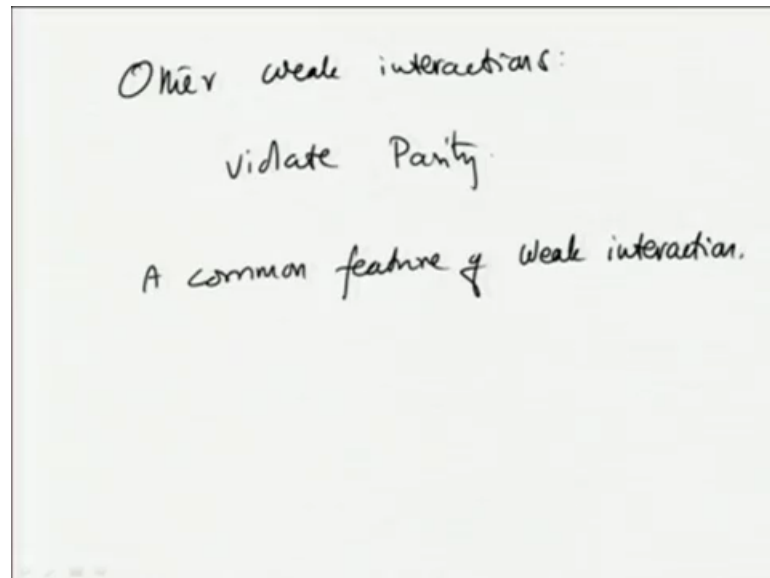 Other weak interactions:
violate Parity.
A common feature of weak interaction.